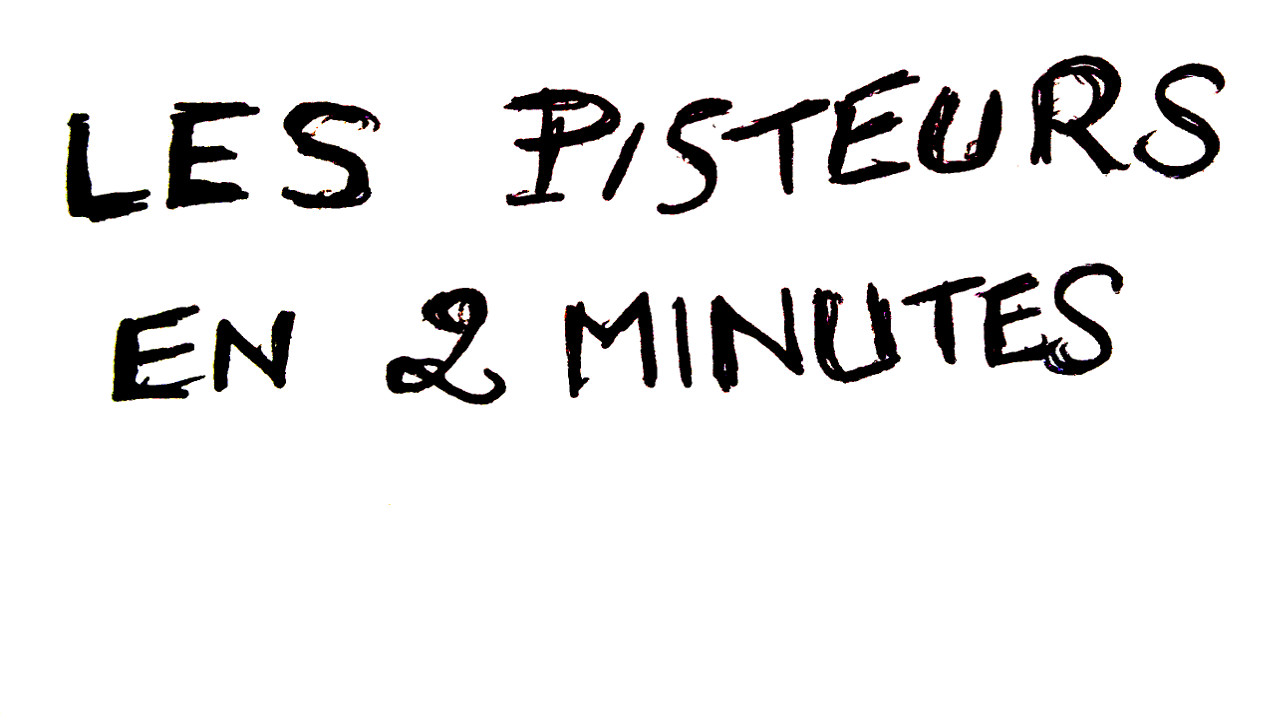 LES PISTEURS
EN 2 MINUTES